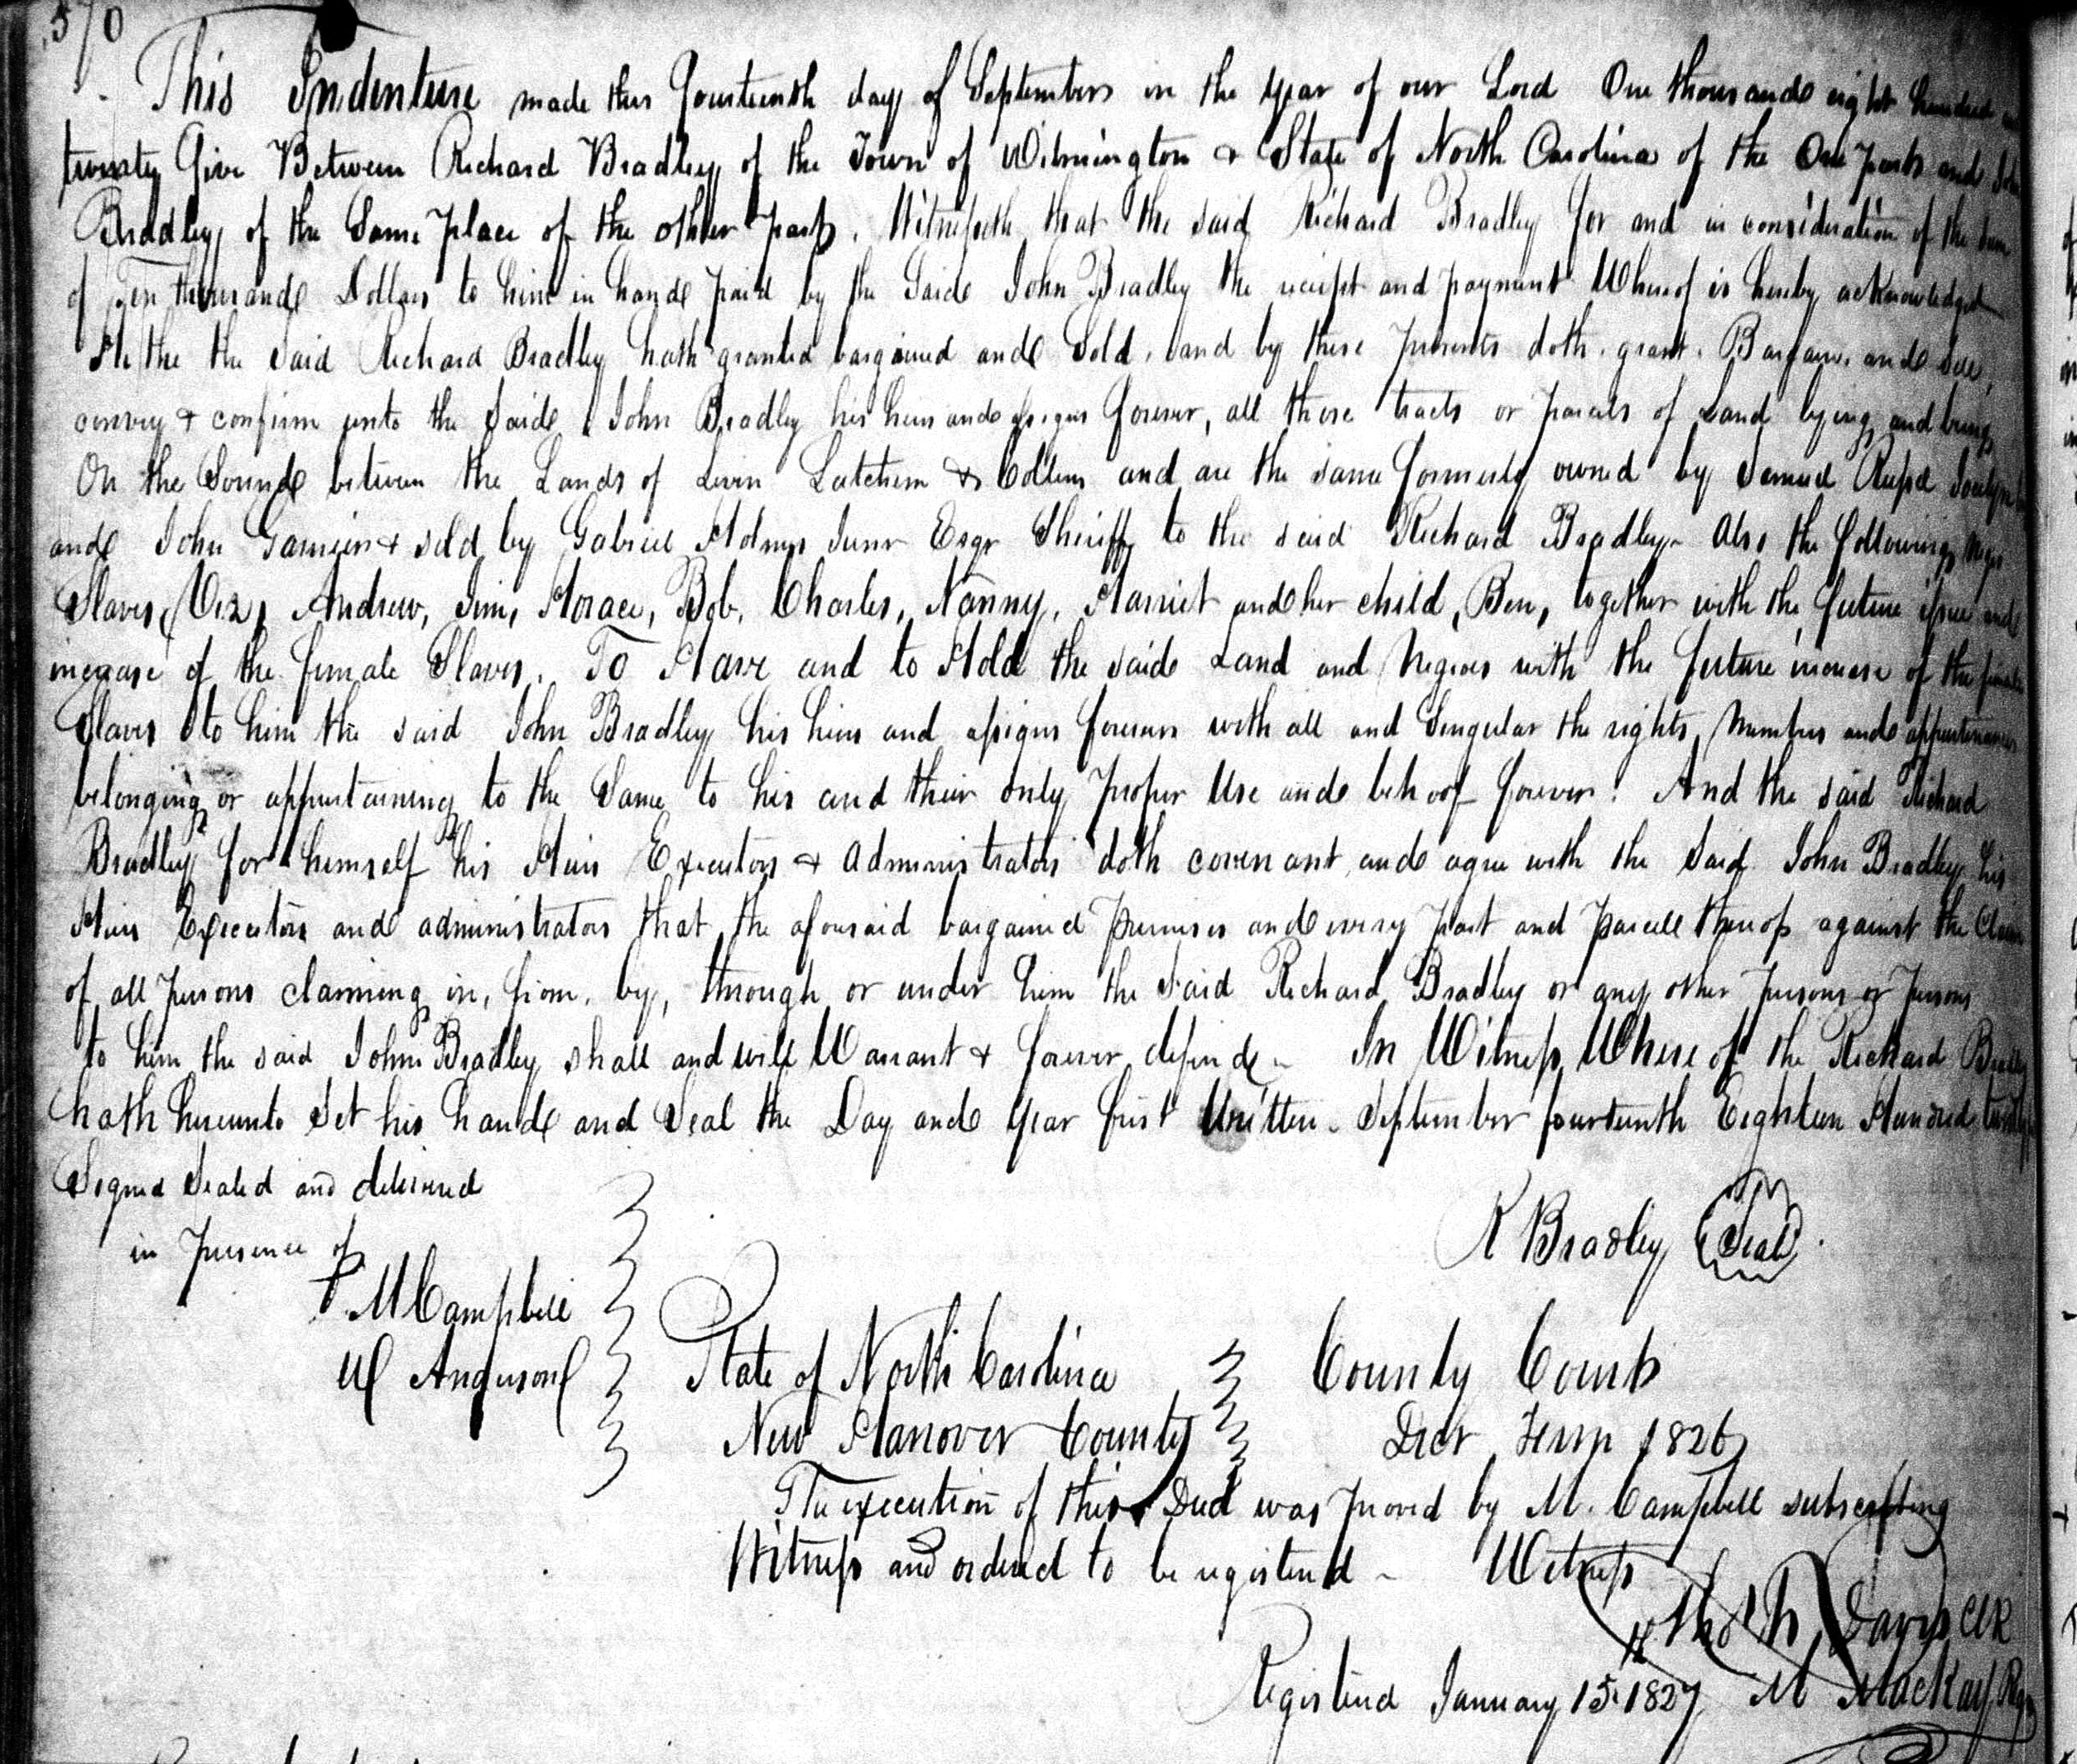 570
This Indenture made this fourteenth day of September in the year of our Lord One thousand eight hundred
twenty five Between Richard Bradley of the Town of Wilmington & State of North Carolina of the One part and John
Bradley of the Same place of the other part. Witnesseth that the said Richard Bradley for and in consideration of the sum
of Ten thousand Dollars to him in hand paid by the said John Bradley the receipt and payment Whereof is hereby acknowledged
He the the said Richard Bradley hath granted bargained and Sold, and by these presents doth, grant, Bargain, and sell,
convey & confirm unto the said John Bradley his heirs and assigns forever, all those tracts or parcels of Land lying and being
On the Sound between the Lands of Levin & Collens and are the same formerly owned by Samuel
and John & sold by Gabriel Holmes Junr Esqr Sheriff to the said Richard Bradley- Also the following Negro
Slaves, Viz, Andrew, Jim, Horace, Bob, Charles, Nanny, Harriet and her child, Ben, together with the future issue and
increase of the female Slaves. To Have and to Hold the said Land and Negroes with the future increase of the female
Slaves to him the said John Bradley his heirs and assigns forever with all and Singular the rights, Members and appurtenances
belonging or appertaining to the Same to his and their only proper Use and behoof forever. And the said Richard
Bradley for himself his Heirs Executors & Administrators doth covenant and agree with the said John Bradley his
Heirs Executors and administrators that the aforesaid bargained premises and every part and parcell thereof against the Claim
of all persons claiming in, from, by, through or under him the said Richard Bradley or any other persons or persons
to him the said John Bradley shall and will Warrant & forever defend- In Witness Whereof the Richard Bradley
hath hereunto Set his hand and Seal the Day and year first Written- September fourteenth Eighteen Hundred
Signed Sealed and delivered
in presence of
M Campbell
R Bradley (Seal)
State of North Carolina County Court
New Hanover County Decr Term 1826
The execution of this Deed was proved by M. Campbell subscribing
Witness and ordered to be registered - Witness
Davis Clk
Registered January 15th 1827 M MacKay, Regr